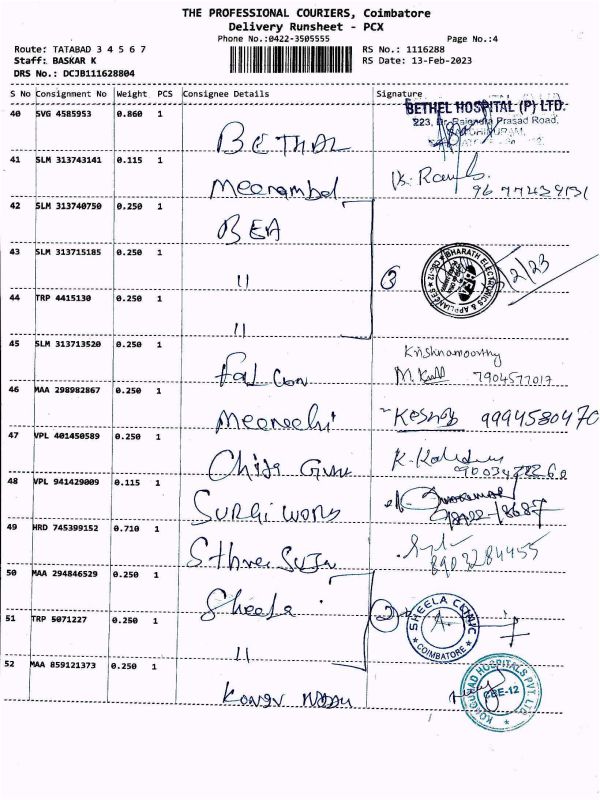 THE PROFESSIONAL COURIERS, Coimbatore
Delivery Runsheet - PCX
Phone No.:0422-3505555
Page No.:4
Route: TATABAD 3 4 5 6 7
RS No.: 1116288
Staff: BASKAR K
RS Date: 13-Feb-2023
DRS No.: DCJB111628804
S No Consignment No Weight PCS Consignee Details Signature
40 SVG 4585953 0.860 1
BETHEL HOSPITAL (P) LTD.
223, Dr. Rajendra Prasad Road,
BETHAL
41 SLM 313743141 0.115 1
Meenambal
42 SLM 313740750 0.250 1
BEA
43 SLM 313715185 0.250 1
"
3
BHARATH ELECTRONICS & APPLIANCES
CBE-12
2/23
44 TRP 4415130 0.250 1
"
45 SLM 313713520 0.250 1
Krishnamoorthy
Falcon
7904577017
46 MAA 298982867 0.250 1
Meenachi
Keshab 9994580470
47 VPL 401450589 0.250 1
Chita Guru
48 VPL 941429009 0.115 1
Surgi world
49 HRD 745399152 0.710 1
Sthree Suja
8903284455
50 MAA 294846529 0.250 1
Sheela
2
SHEELA CLINIC
COIMBATORE
51 TRP 5071227 0.250 1
"
52 MAA 859121373 0.250 1
Kongu Nadu
KONGUNAD HOSPITALS PVT. LTD.
CBE-12